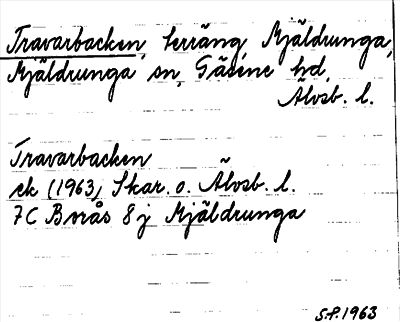 Travarbacken, terräng, Mjäldrunga,
Mjäldrunga sn, Gäsene hd,
Älvsb. l.
Travarbacken
ek (1963) Skar. o. Älvsb. l.
7C Borås 8j Mjäldrunga
S.P. 1963